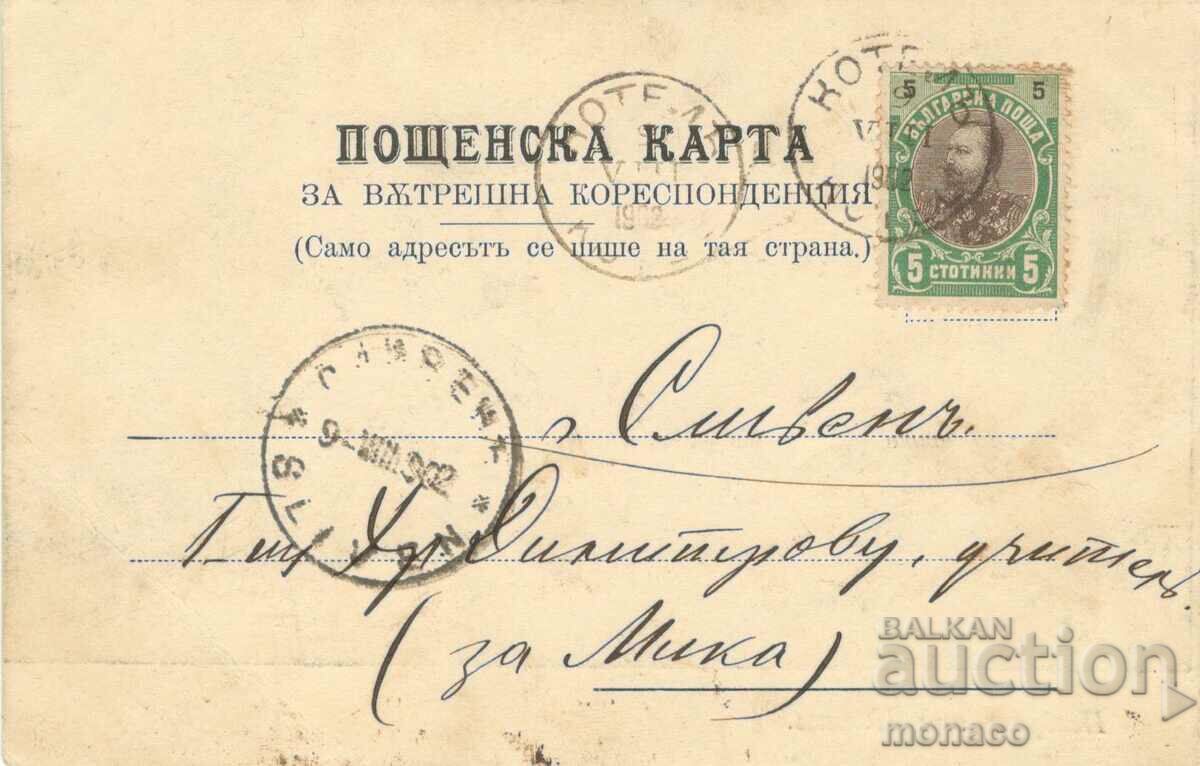 КОТЕЛЪ
VIII
1902
КОТЕЛЪ
VIII
1902
5 5
БЪЛГАРСКА ПОЩА
5 СТОТИНКИ 5
ПОЩЕНСКА КАРТА
ЗА ВѪТРЕШНА КОРЕСПОНДЕНЦИЯ
(Само адресътъ се пише на тая страна.)
СЛИВЕНЪ
9-VIII.902
SLIVEN
г Сливенъ.
Г-ну Хр Димитрову, учитель
(за Мика)
BALKAN
auction
monaco